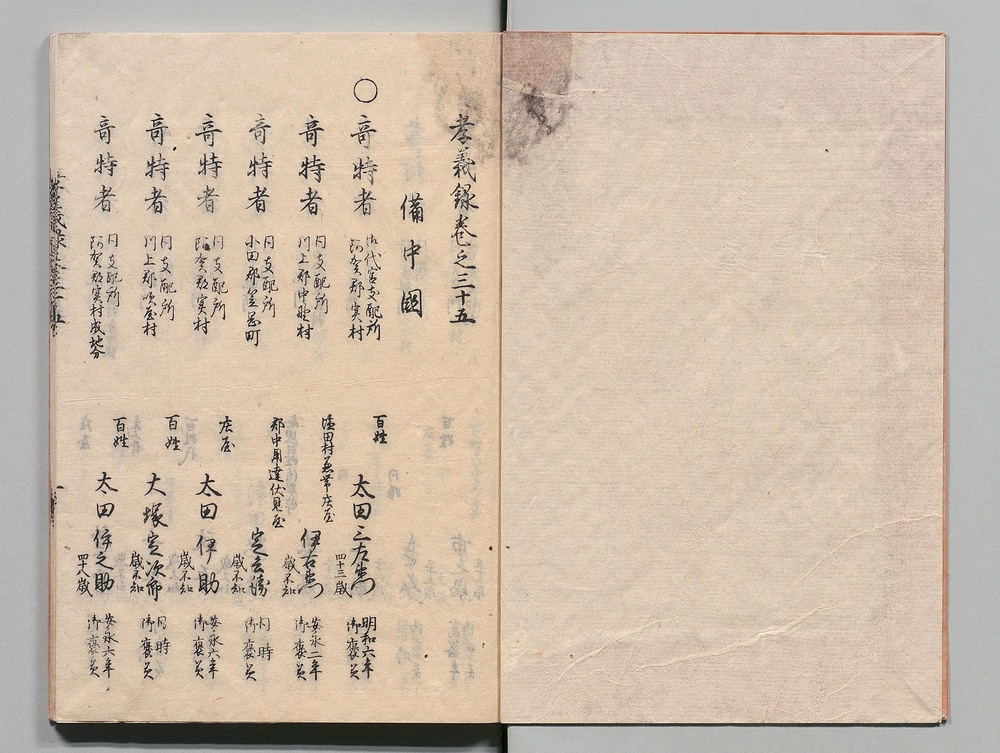 孝義録巻之三十五
備中國
○奇特者 御代官支配所 阿賀郡実村 百姓 太田三右衛門 四十三歳 明和六年 御褒美
奇特者 同支配所 川上郡中野村 塩田村兼帯庄屋 伊右衛門 歳不知 安永二年 御褒美
奇特者 同支配所 小田郡笠岡町 郡中用達伏見屋 定兵衛 歳不知 同時 御褒美
奇特者 同支配所 阿賀郡実村 庄屋 太田伊助 歳不知 安永六年 御褒美
奇特者 同支配所 川上郡吹屋村 百姓 大塚定次郎 歳不知 同時 御褒美
奇特者 同支配所 阿賀郡実村成地分 百姓 太田伊之助 四十八歳 安永六年 御褒美